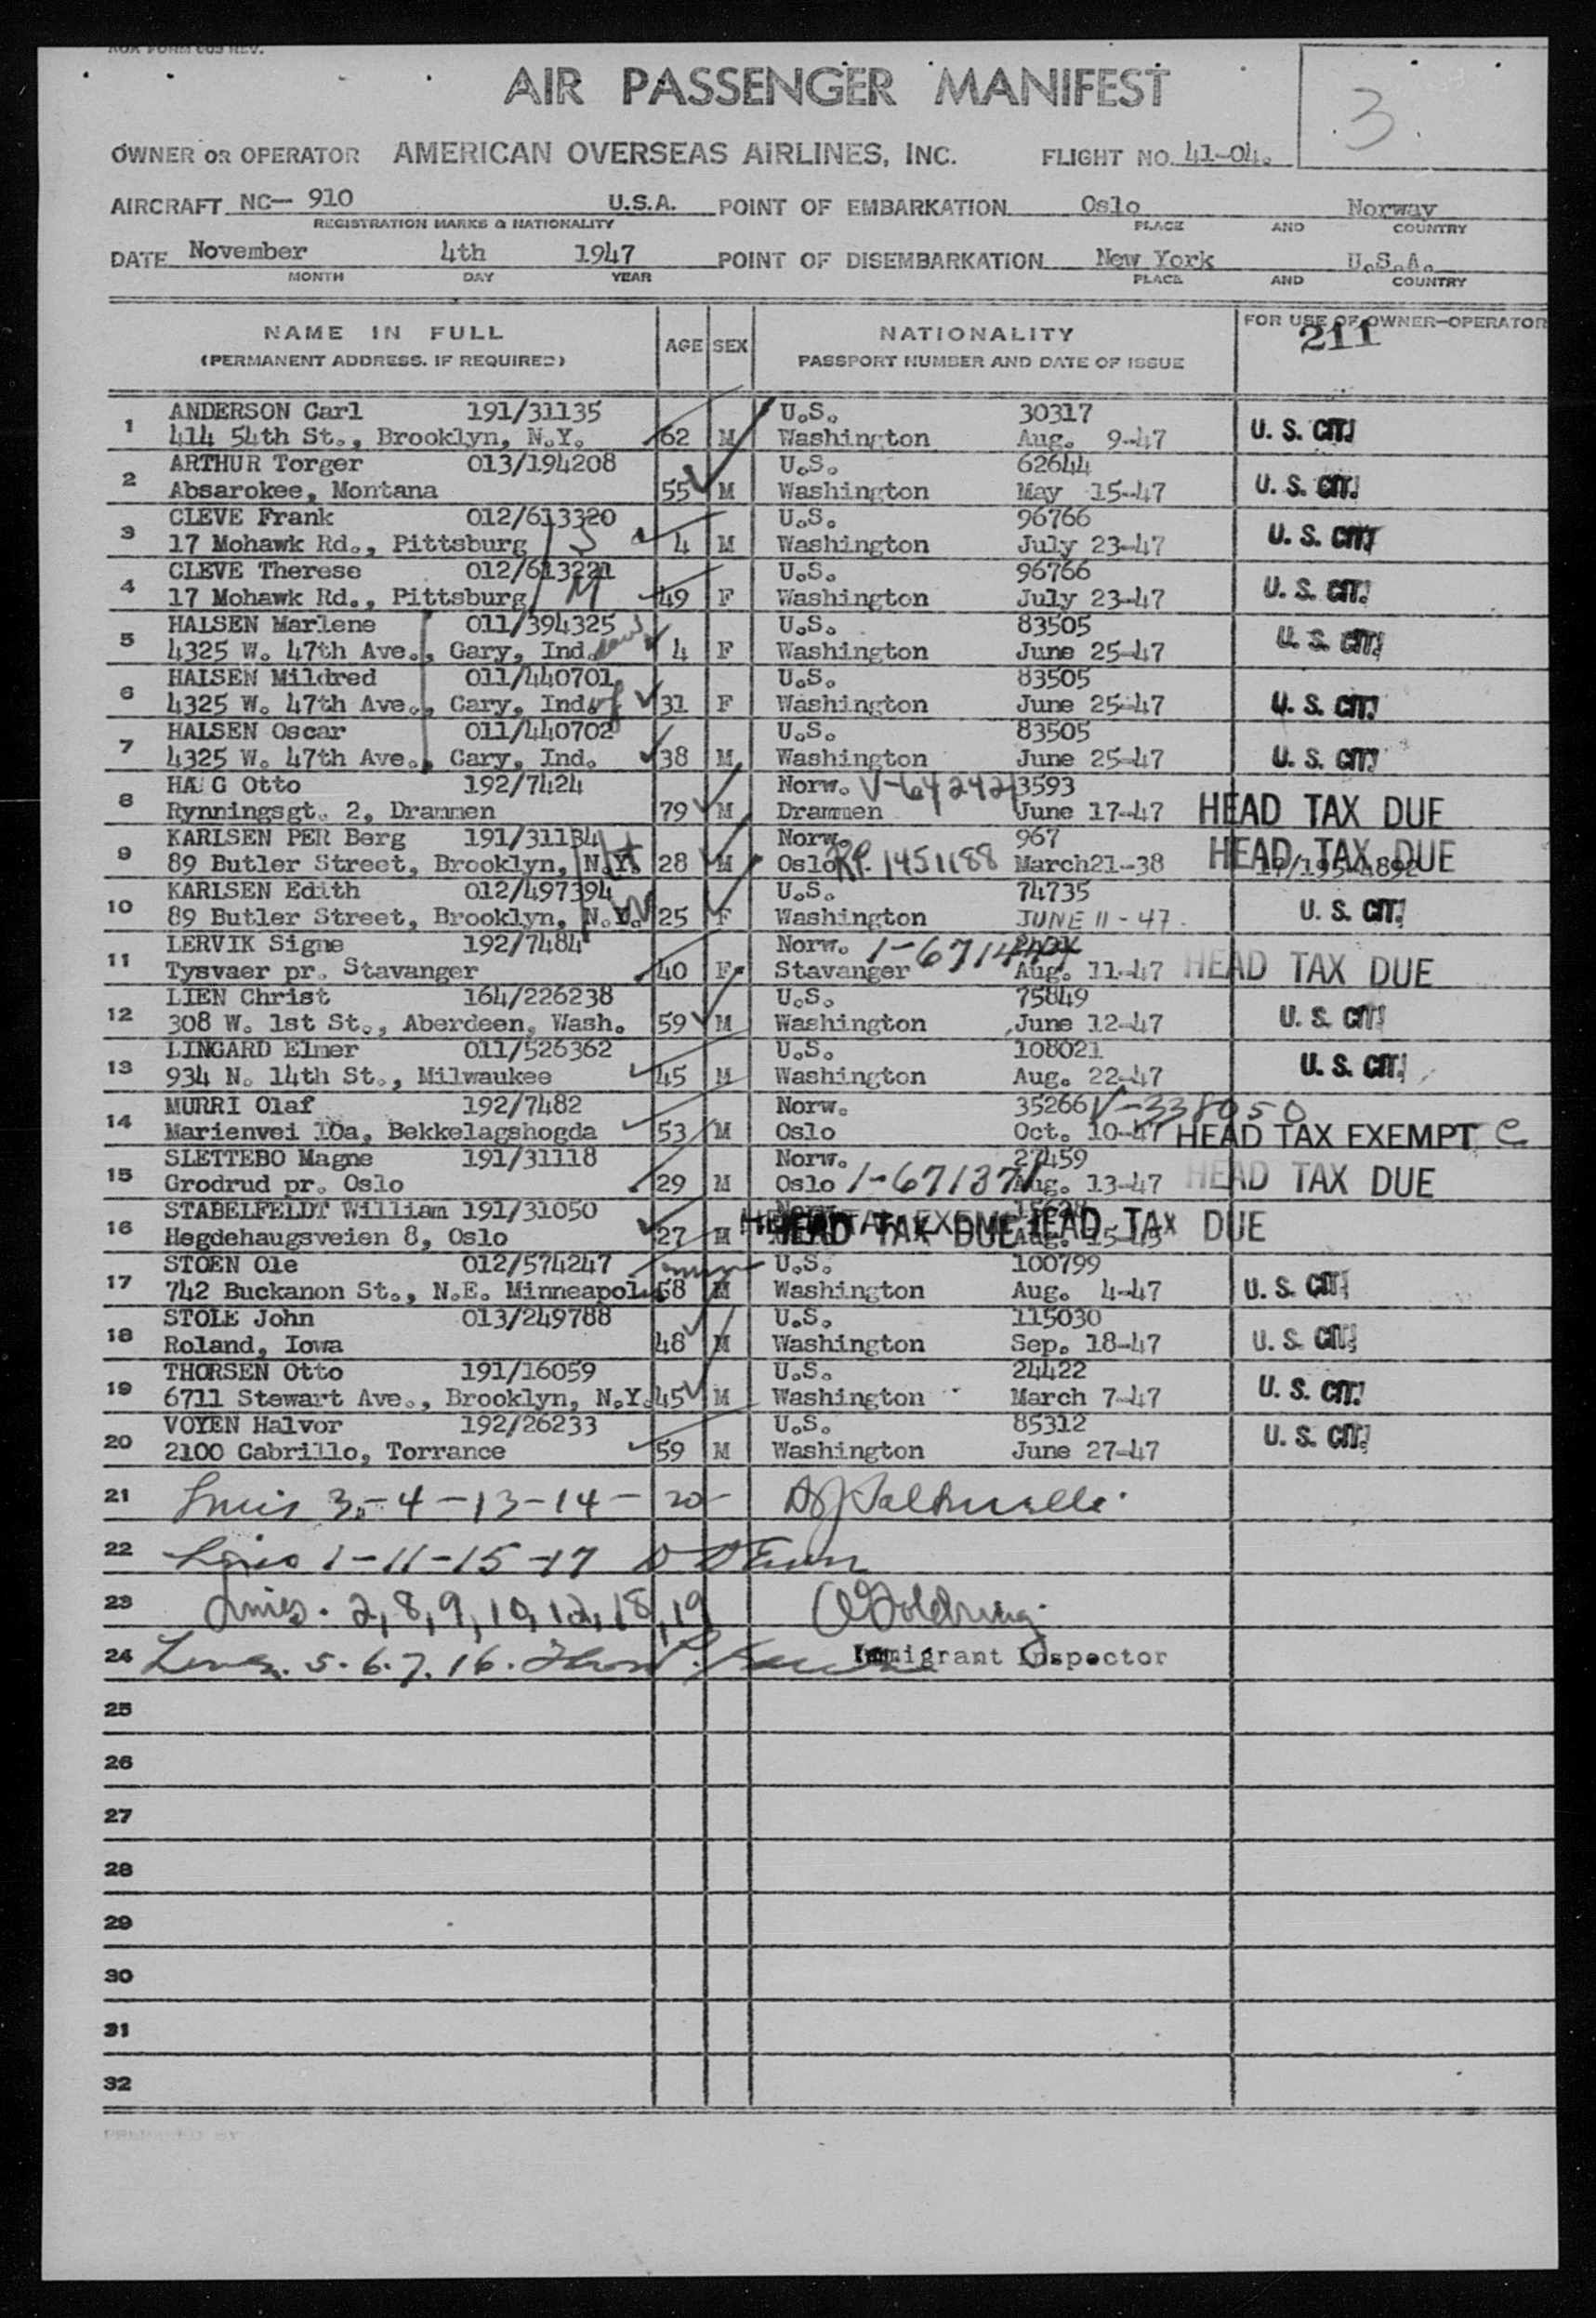 AIR PASSENGER MANIFEST
3
OWNER OR OPERATOR AMERICAN OVERSEAS AIRLINES, INC. FLIGHT NO. 41-04.
AIRCRAFT NC- 910 U.S.A. POINT OF EMBARKATION Oslo Norway
REGISTRATION MARKS & NATIONALITY PLACE AND COUNTRY
DATE November 4th 1947 POINT OF DISEMBARKATION New York U.S.A.
MONTH DAY YEAR PLACE AND COUNTRY
NAME IN FULL AGE SEX NATIONALITY FOR USE OF OWNER-OPERATOR
(PERMANENT ADDRESS. IF REQUIRED) PASSPORT NUMBER AND DATE OF ISSUE 211
1 ANDERSON Carl 191/31135 U.S. 30317
414 54th St., Brooklyn, N.Y. 62 M Washington Aug. 9-47 U. S. CIT.
2 ARTHUR Torger 013/194208 U.S. 62644
Absarokee, Montana 55 M Washington May 15-47 U. S. CIT.
3 CLEVE Frank 012/613320 U.S. 96766
17 Mohawk Rd., Pittsburg 4 M Washington July 23-47 U. S. CIT.
4 CLEVE Therese 012/613221 U.S. 96766
17 Mohawk Rd., Pittsburg M 49 F Washington July 23-47 U. S. CIT.
5 HALSEN Marlene 011/394325 U.S. 83505
4325 W. 47th Ave., Gary, Ind. 4 F Washington June 25-47 U. S. CIT.
6 HALSEN Mildred 011/440701 U.S. 83505
4325 W. 47th Ave., Gary, Ind. 31 F Washington June 25-47 U. S. CIT.
7 HALSEN Oscar 011/440702 U.S. 83505
4325 W. 47th Ave., Gary, Ind. 38 M Washington June 25-47 U. S. CIT.
8 HAUG Otto 192/7424 Norw. V-642421 3593
Rynningsgt. 2, Drammen 79 M Drammen June 17-47 HEAD TAX DUE
9 KARLSEN PER Berg 191/31134 Norw. 967
89 Butler Street, Brooklyn, N.Y. 28 M Oslo RP. 1451188 March21-38 HEAD TAX DUE
10 KARLSEN Edith 012/497394 U.S. 74735
89 Butler Street, Brooklyn, N.Y. 25 F Washington JUNE 11-47. U. S. CIT.
11 LERVIK Signe 192/7484 Norw.
Tysvaer pr. Stavanger 40 F Stavanger Aug. 11-47 HEAD TAX DUE
12 LIEN Christ 164/226238 U.S. 75849
308 W. 1st St., Aberdeen, Wash. 59 M Washington June 12-47 U. S. CIT.
13 LINGARD Elmer 011/526362 U.S. 108021
934 N. 14th St., Milwaukee 45 M Washington Aug. 22-47 U. S. CIT.
14 MURRI Olaf 192/7482 Norw. 35266 V-338050
Marienvei 10a, Bekkelagshogda 53 M Oslo Oct. 10-47 HEAD TAX EXEMPT C
15 SLETTEBO Magne 191/31118 Norw. 27459
Grodrud pr. Oslo 29 M Oslo 1-671371 Aug. 13-47 HEAD TAX DUE
16 STABELFELDT William 191/31050
Hegdehaugsveien 8, Oslo 27 M HEAD TAX DUE HEAD TAX DUE
17 STOEN Ole 012/574247 U.S. 100799
742 Buckanon St., N.E. Minneapol 58 M Washington Aug. 4-47 U. S. CIT.
18 STOLE John 013/249788 U.S. 115030
Roland, Iowa 48 M Washington Sep. 18-47 U. S. CIT.
19 THORSEN Otto 191/16059 U.S. 24422
6711 Stewart Ave., Brooklyn, N.Y. 45 M Washington March 7-47 U. S. CIT.
20 VOYEN Halvor 192/26233 U.S. 85312
2100 Cabrillo, Torrance 59 M Washington June 27-47 U. S. CIT.
21 Lines 3-4-13-14-20-
22 Lines 1-11-15-17
23 Lines. 2,8,9,10,12,18,19
24 Lines. 5.6.7.16. Immigrant Inspector
25
26
27
28
29
30
31
32
PREPARED BY